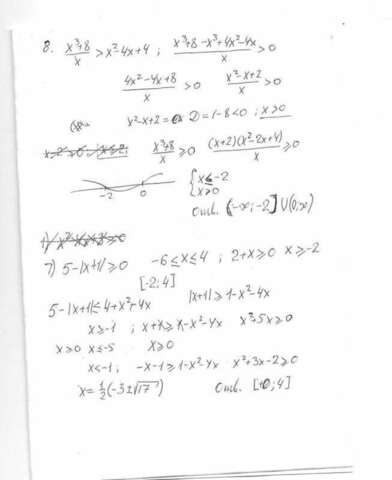 8. (x³+8)/x > x²-4x+4 ; (x³+8-x³+4x²-4x)/x > 0
(4x²-4x+8)/x > 0 (x²-x+2)/x > 0
x²-x+2= D=1-8<0 ; x>0
(x³+8)/x ≥ 0 (x+2)(x²-2x+4)/x ≥ 0
-2 0 { x ≤ -2
x > 0
Отв. (-∞; -2] U (0; ∞)
7) 5-|x+1| ≥ 0 -6 ≤ x ≤ 4 ; 2+x ≥ 0 x ≥ -2
[-2; 4]
5-|x+1| ≤ 4+x²+4x |x+1| ≥ 1-x²-4x
x ≥ -1 ; x+1 ≥ 1-x²-4x x²+5x ≥ 0
x ≥ 0 x ≤ -5 x ≥ 0
x < -1 ; -x-1 ≥ 1-x²-4x x²+3x-2 ≥ 0
x = ½(-3±√17) Отв. [0; 4]